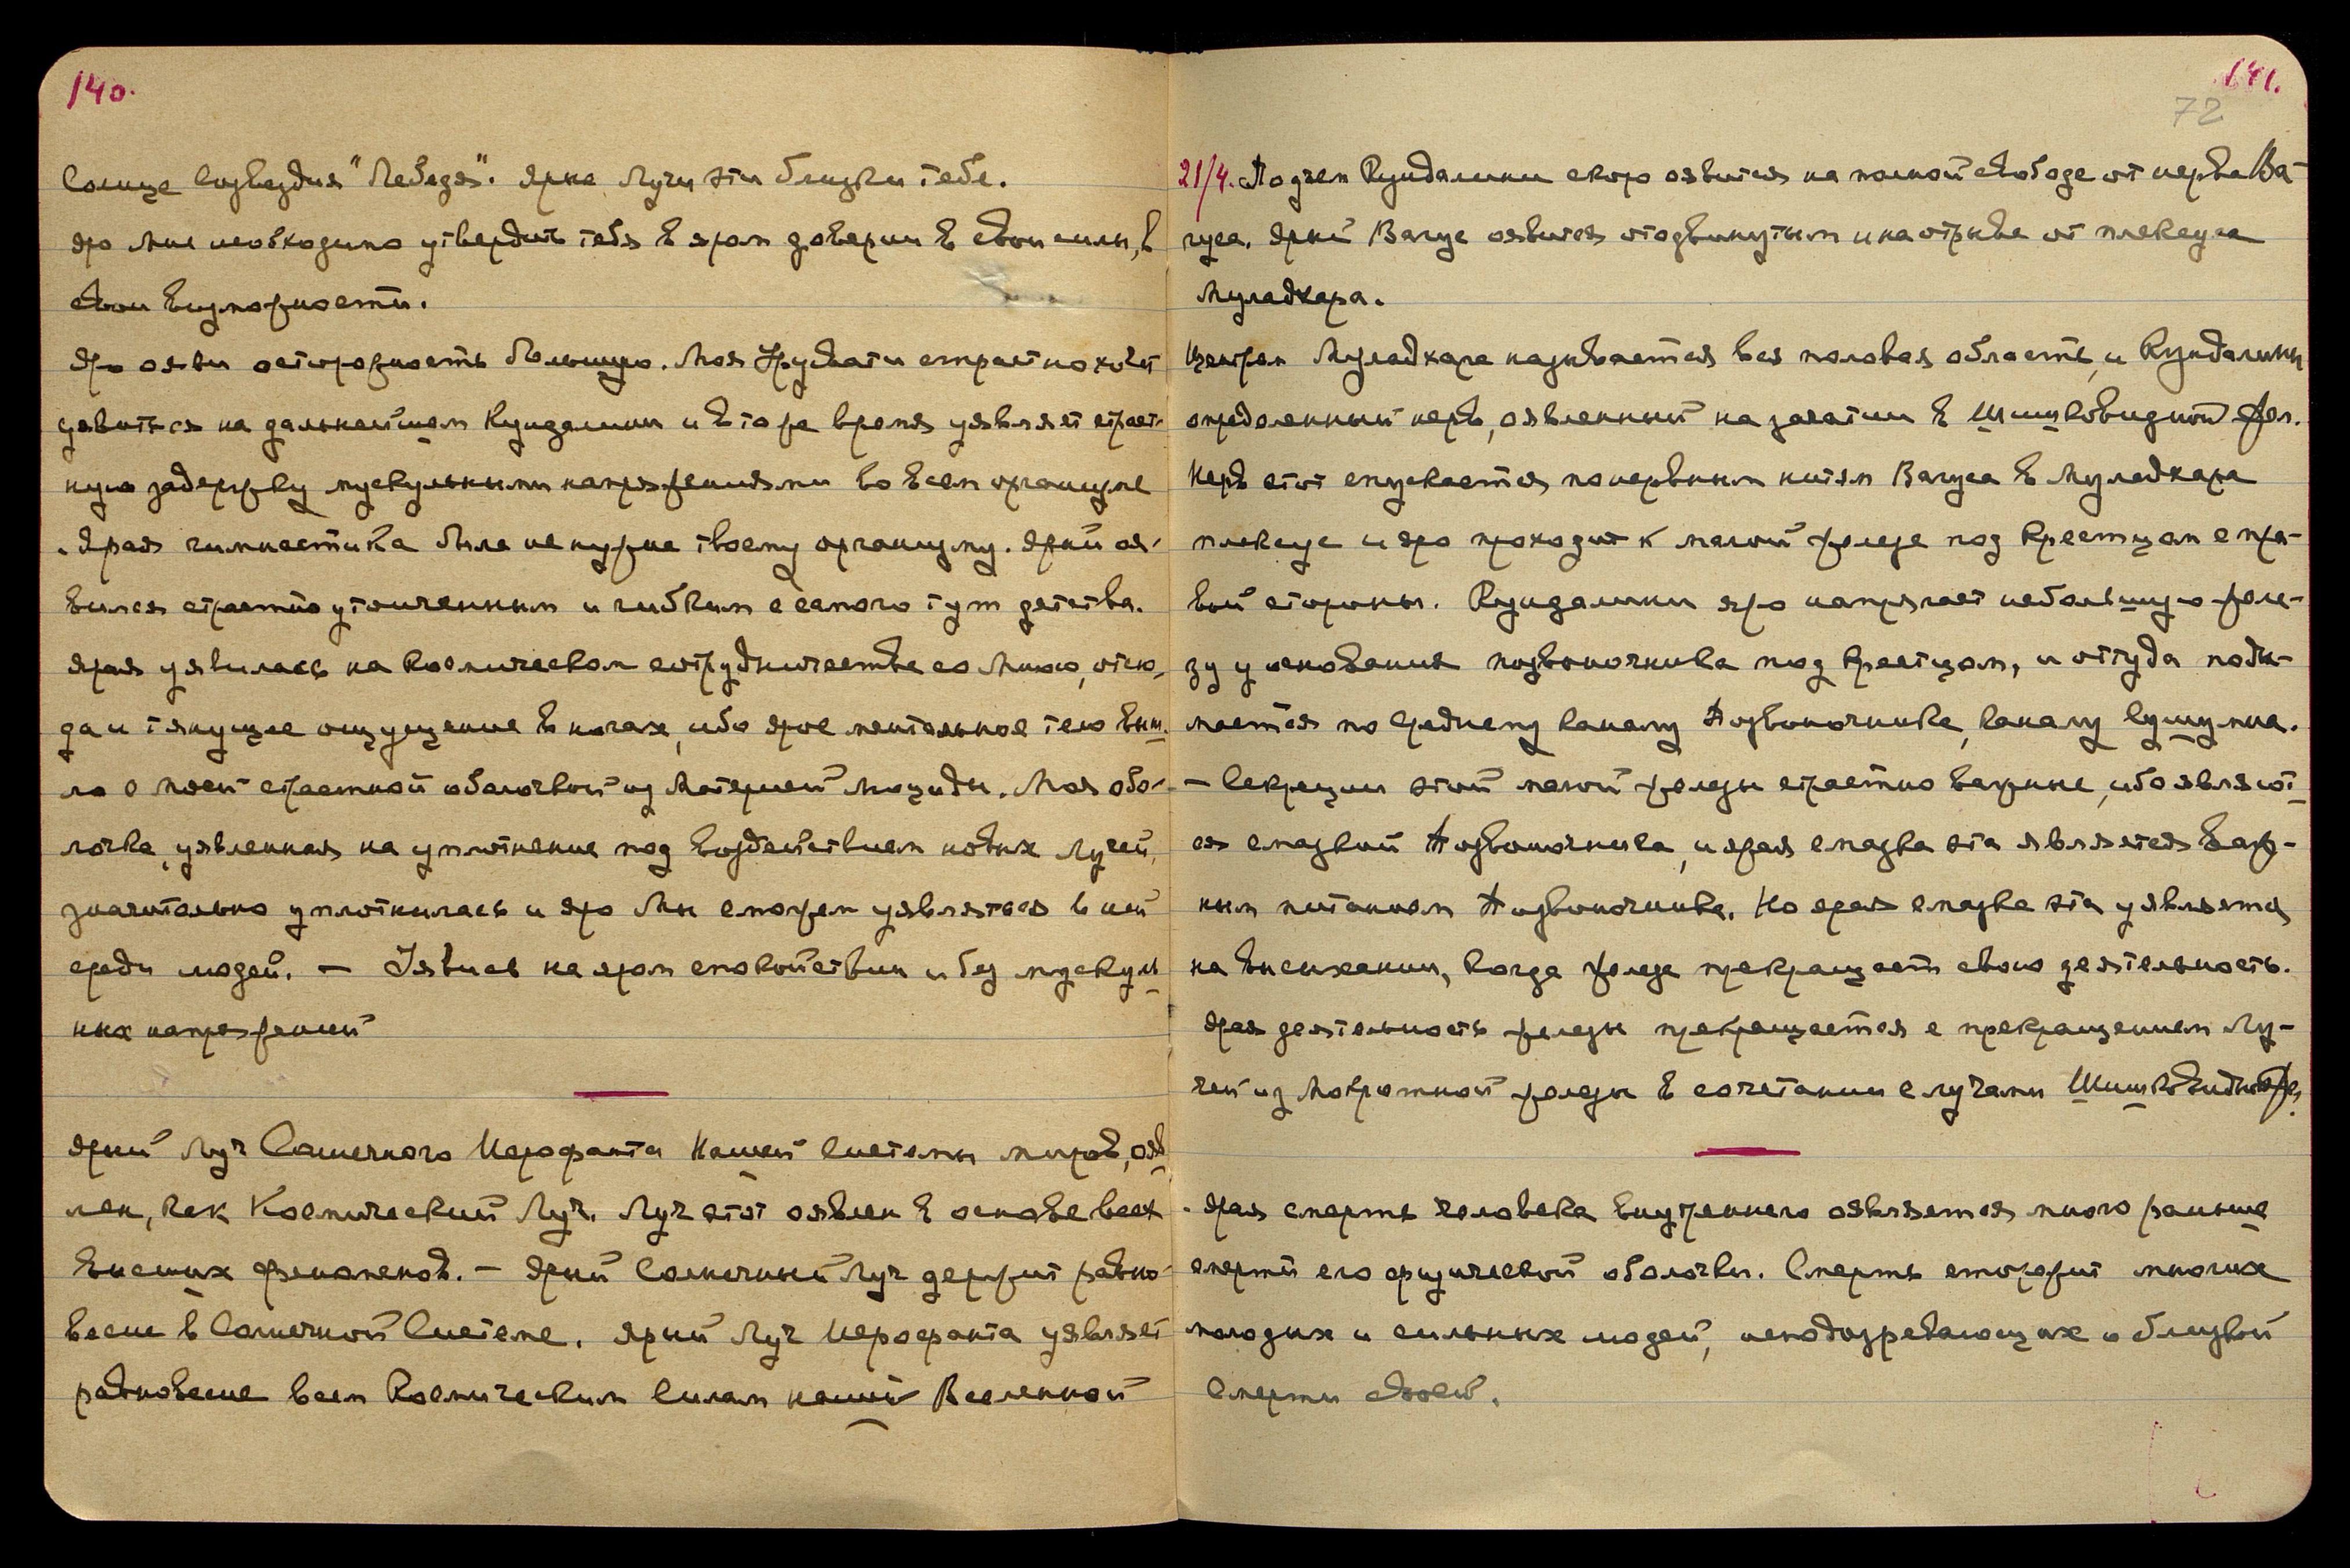 140.
Солнце Созвездия "Лебедя". Ярые Лучи эти близки тебе.
Яро Мне необходимо утвердить тебя в яром доверии в свои силы, в
свои возможности.
Яро яви осторожность большую. Моя Урусвати страстно хочет
уявиться на дальнейшем Кундалини и в то же время уявляет страст-
ную задержку мускульными напряжениями во всем организме
. Ярая гимнастика была не нужна твоему организму. Ярый оя-
вился страстно утонченным и гибким с самого тут детства.
Ярая уявилась на Космическом сотрудничестве со Мною, отсю-
да и тянущее ощущение в ногах, ибо ярое ментальное тело вы
ло с моей страстной оболочкой из Материей Люциды. Моя обо-
лочка, уявленная на уплотнение под воздействием новых Лучей,
значительно уплотнилась и яро Мы сможем уявляться в ней
среди людей. – Уявись на яром спокойствии и без мускуль
ных напряжений
Ярый Луч Солнечного Иерофанта Нашей Системы миров, ояв
лен, как Космический Луч. Луч этот оявлен в основе всех
высших феноменов. – Ярый Солнечный Луч держит равно-
весие в Солнечной Системе. Ярый Луч Иерофанта уявляет
равновесие всем Космическим Силам нашей Вселенной
141.
72
21/4. Подъем Кундалини скоро оявится на полной свободе от нерва Ва-
гуса. Ярый Вагус оявится отодвинутым и на отрыве от плексуса
Муладхара.
Центром Муладхара называется вся половая область, и Кундалини
определенный нерв, оявленный на зачатии в Шишковидной жел.
Нерв этот спускается по нервным нитям Вагуса в Муладхара
плексус и яро проходит к малой железе под крестцом с пра-
вой стороны. Кундалини яро напрягает небольшую желе-
зу у основания позвоночника под крестцом, и оттуда поды-
мается по Среднему каналу Позвоночника, каналу Сушумна.
– Секреции этой малой железы страстно важные, ибо являют
ся смазкой Позвоночника, и ярая смазка эта является важ-
ным питанием Позвоночника. Но ярая смазка эта уявляется
на высыхании, когда железа прекращает свою деятельность.
Ярая деятельность железы прекращается с прекращением Лу-
чей из Мокротной железы в сочетании с лучами Шишковидной же.
. Ярая смерть человека внутреннего оявляется много раньше
смерти его физической оболочки. Смерть сторожит многих
молодых и сильных людей, неподозревающих о близкой
Смерти своей.